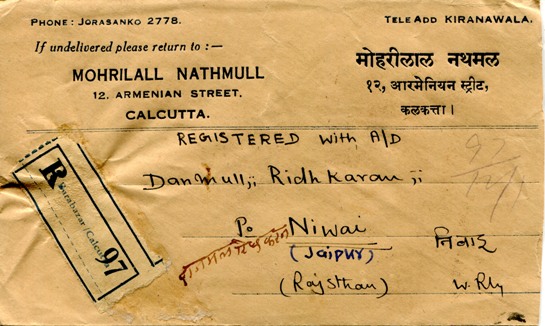 PHONE: JORASANKO 2778.
TELEADD KIRANAWALA.
If undelivered please return to :—
MOHRILALL NATHMULL
12, ARMENIAN STREET,
CALCUTTA.
मोहरीलाल नथमल
१२, आरमेनियन स्ट्रीट,
कलकत्ता।
REGISTERED With A/D
Danmull ;; Ridhkaran ;;
Po Niwai
निवाइ
(Jaipur)
(Rajsthan)
W. Rly
R
97